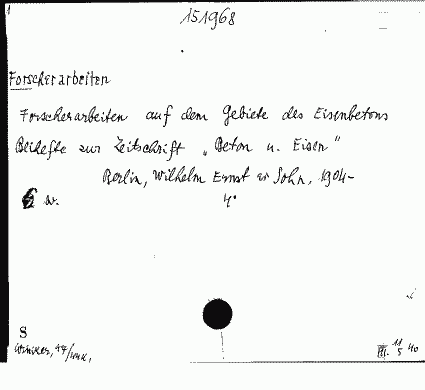 1
151968
Forscherarbeiten
Forscherarbeiten auf dem Gebiete des Eisenbetons
Beihefte zur Zeitschrift „Beton u. Eisen"
Berlin, Wilhelm Ernst & Sohn, 1904-
w. 4°
S
III. 11/5 40